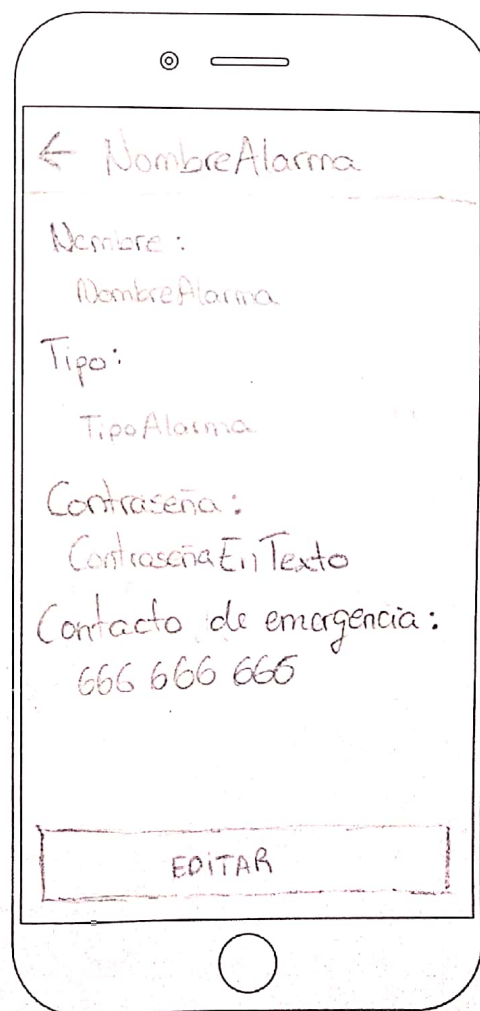 ← NombreAlarma
Nombre:
NombreAlarma
Tipo:
TipoAlarma
Contraseña:
ContraseñaEnTexto
Contacto de emergencia:
666 666 666
EDITAR